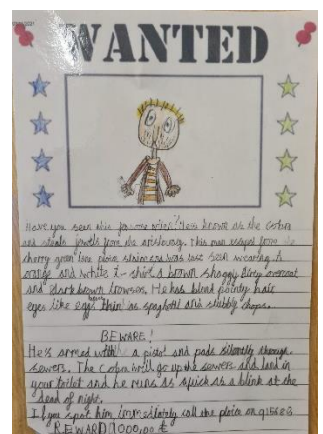 WANTED
Have you seen this man? Also known as the Cobra
and steals jewels from the aristocracy. This man escaped from the
cherry green lane station and was last seen wearing A
orange and white t-shirt a brown shaggy dirty overcoat
and dark brown trowsers. He has blond pointy hair
eyes like eggs thin as spaghetti and stubbly chops.
BEWARE!
He's armed with a pistol and pads silently through
sewers. The Cobra will go up the sewers and land in
your toilet and he runs as quick as a blink at the
dead of night.
If you spot him immediately call the on 915628
REWARD 1000,00 £